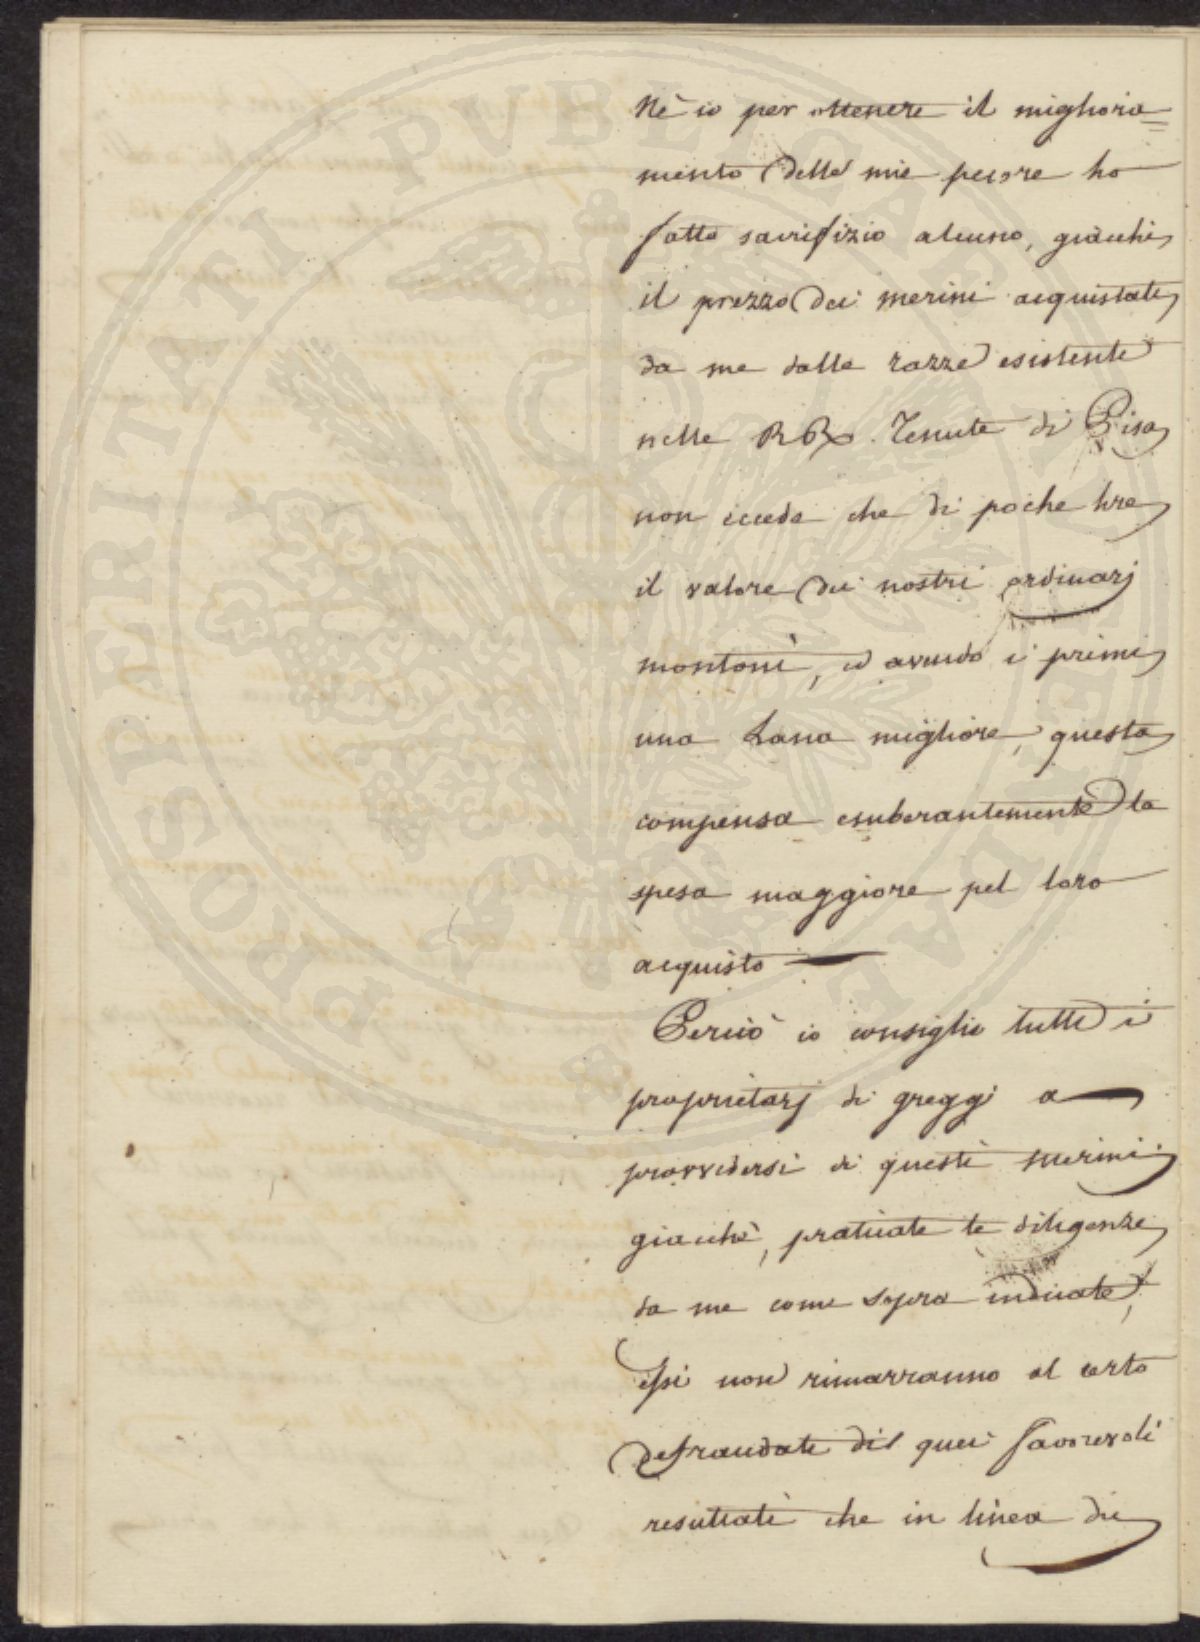 Nè io per ottenere il migliora=
mento delle mie pecore ho
fatto sacrifizio alcuno, giacchè
il prezzo dei merini acquistati
da me dalle razze esistente
nelle RR. Tenute di Pisa
non eccede che di poche lire
il valore dei nostri ordinarj
montoni, ed avendo i primi
una Lana migliore, questa
compensa esuberantemente la
spesa maggiore pel loro
acquisto —
Perciò io consiglio tutti i
proprietarj di greggi a
provvedersi di questi merini;
giacchè, praticate le diligenze
da me come sopra indicate,
essi non rimarranno al certo
defraudati di quei favorevoli
resultati che in linea di
PROSPERITATI PVBLICAE AVGENDAE